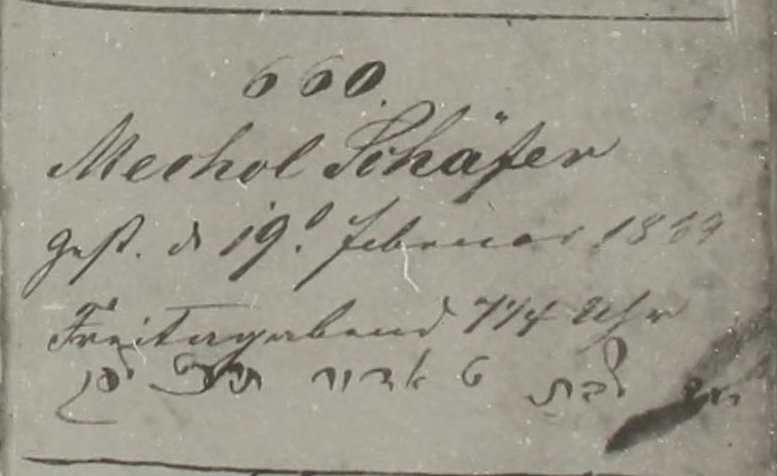 660.
Mechol Schäfer
gest. d 19t Februar 1869
Freitagabend 7 1/4 Uhr
שבת ט אדר תרכ״ט לפק